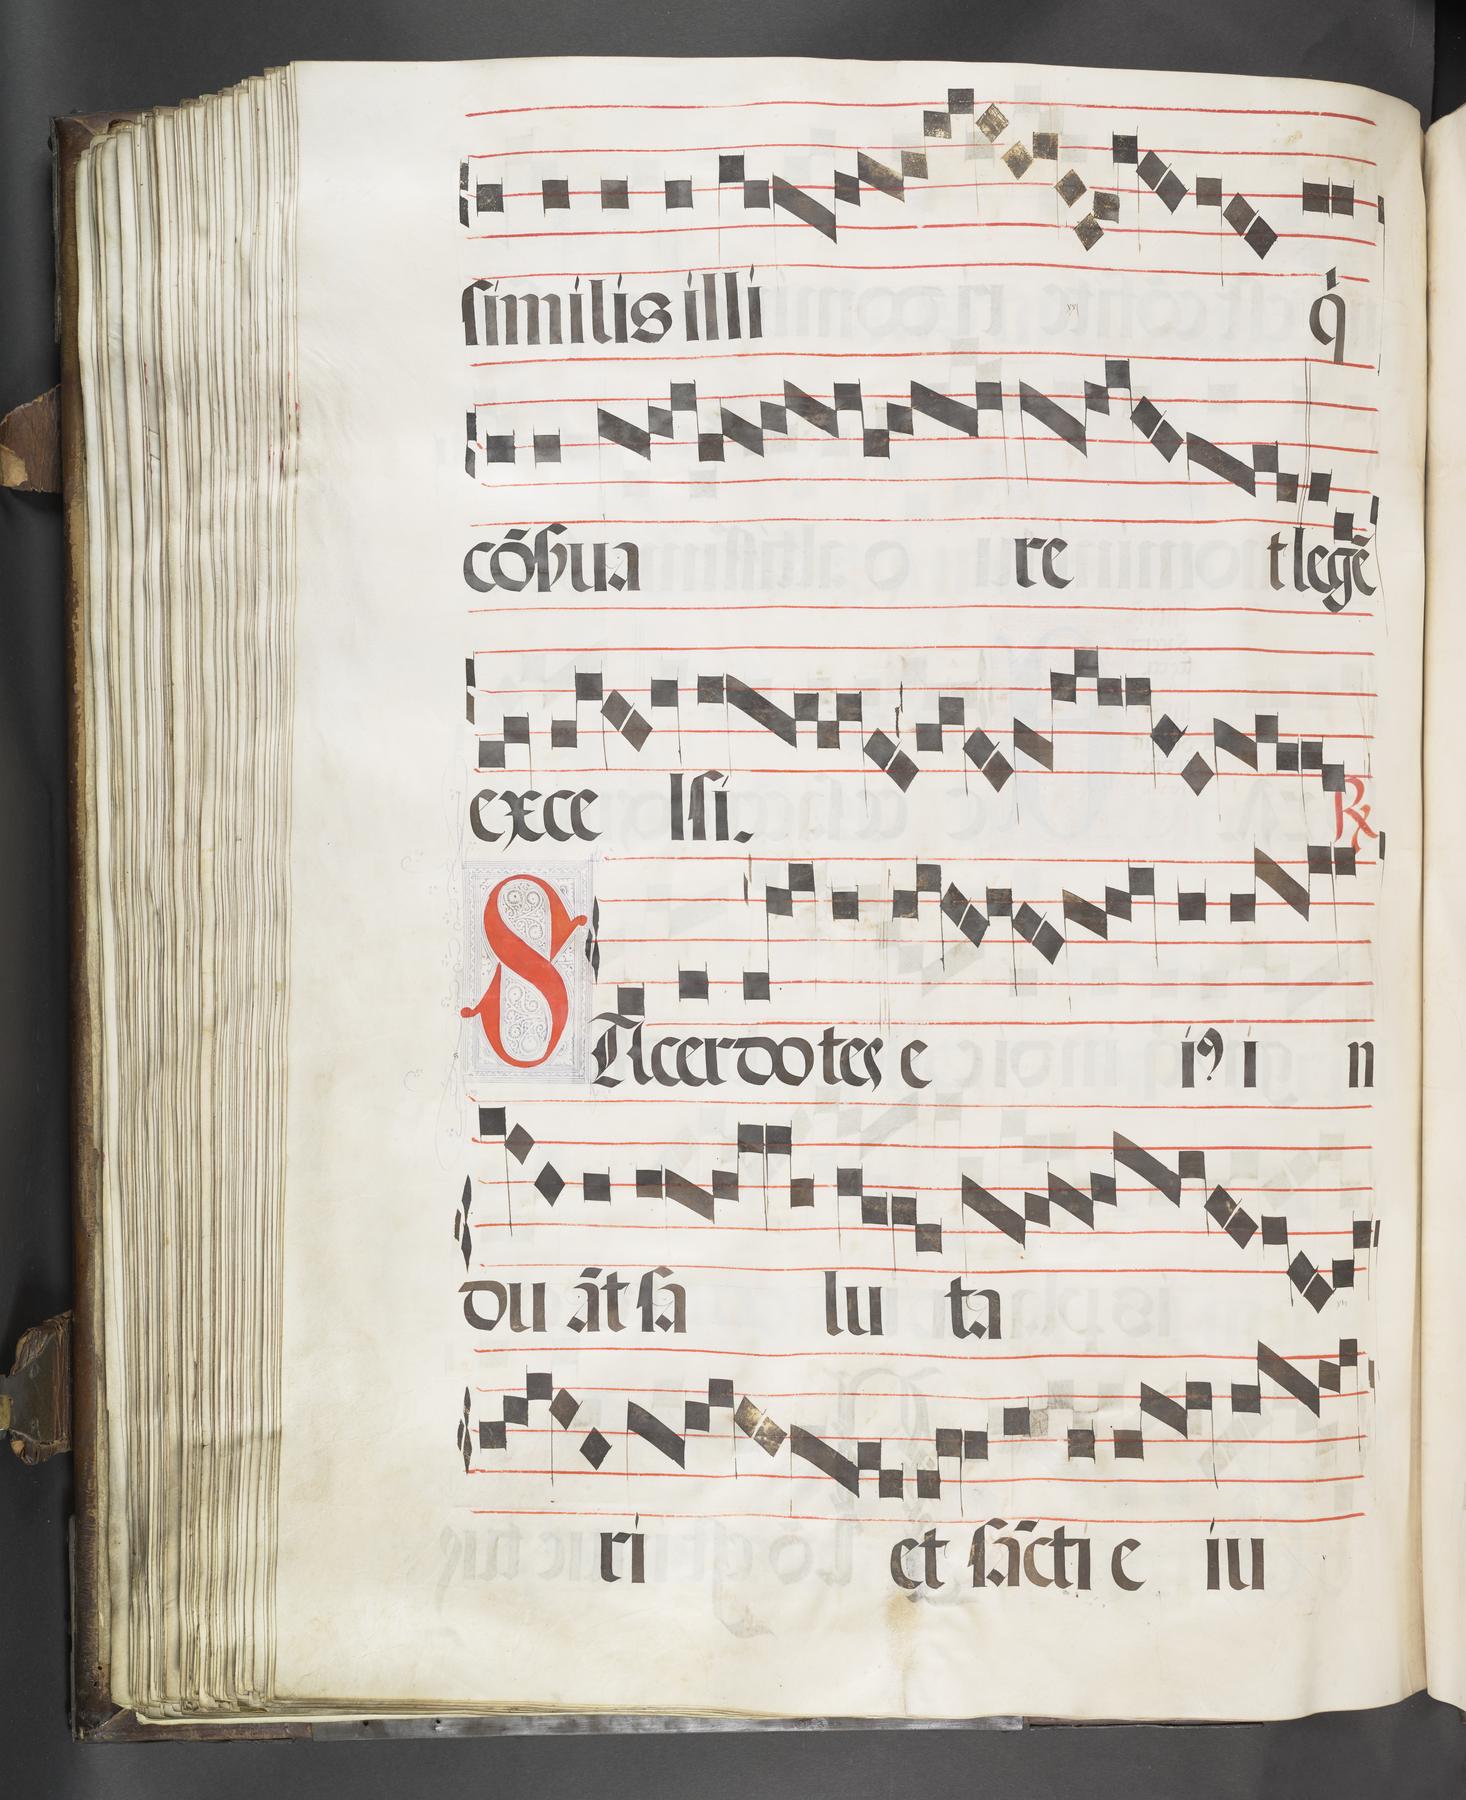 similis illi q̇
cōs̄ua re t legē
exce lsi. ℟
SAcerdotes e iꝰ i n
du āt sa lu ta
ri et sācti e iu